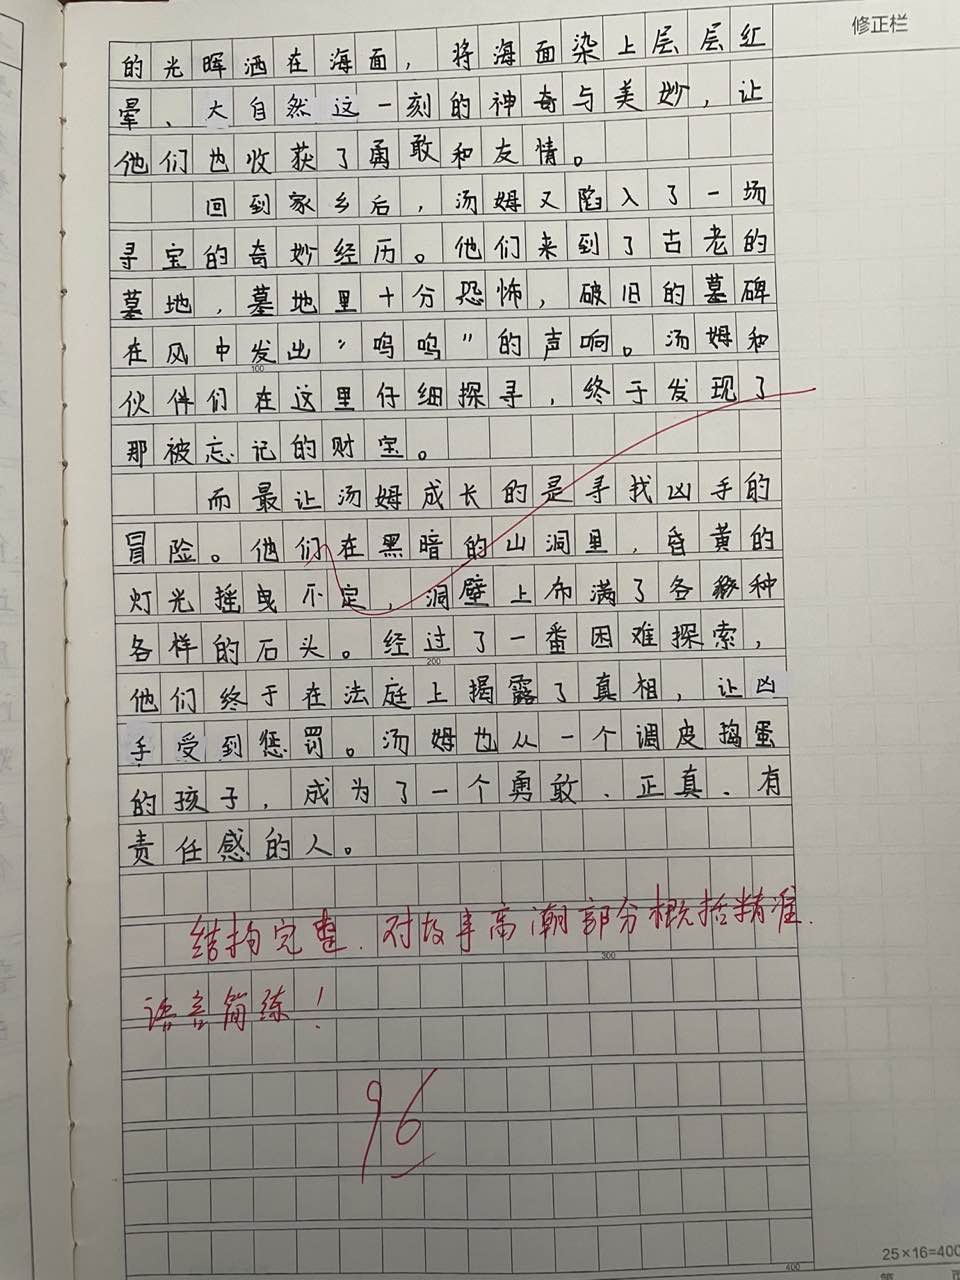 修正栏
的光晖洒在海面，将海面染上层层红
晕、大自然这一刻的神奇与美妙，让
他们也收获了勇敢和友情。
回到家乡后，汤姆又陷入了一场
寻宝的奇妙经历。他们来到了古老的
墓地，墓地里十分恐怖，破旧的墓碑
在风中发出“呜呜”的声响。汤姆和
100
伙伴们在这里仔细探寻，终于发现了
那被忘记的财宝。
而最让汤姆成长的是寻找凶手的
冒险。他们在黑暗的山洞里，昏黄的
灯光摇曳不定，洞壁上布满了各种
各样的石头。经过了一番困难探索，
200
他们终于在法庭上揭露了真相，让凶
手受到惩罚。汤姆也从一个调皮捣蛋
的孩子，成为了一个勇敢、正真、有
责任感的人。
结构完整.对故事高潮部分概括精准.
300
语言简练！
96
25×16=400
400
第